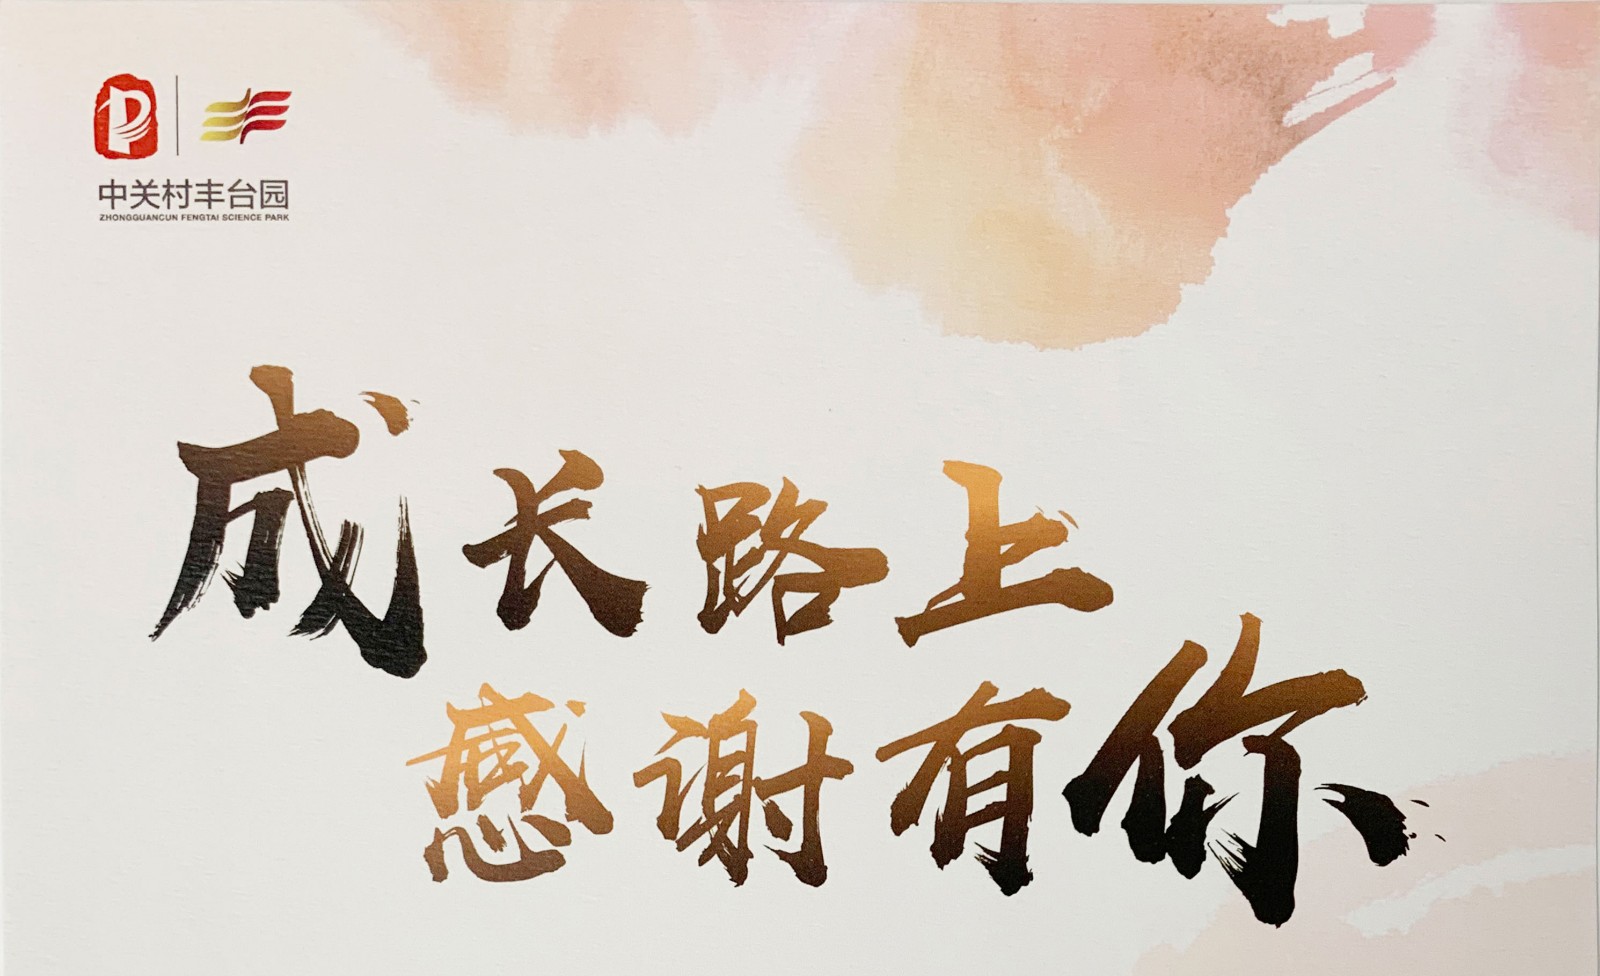 中关村丰台园
ZHONGGUANCUN FENGTAI SCIENCE PARK
成长路上
感谢有你